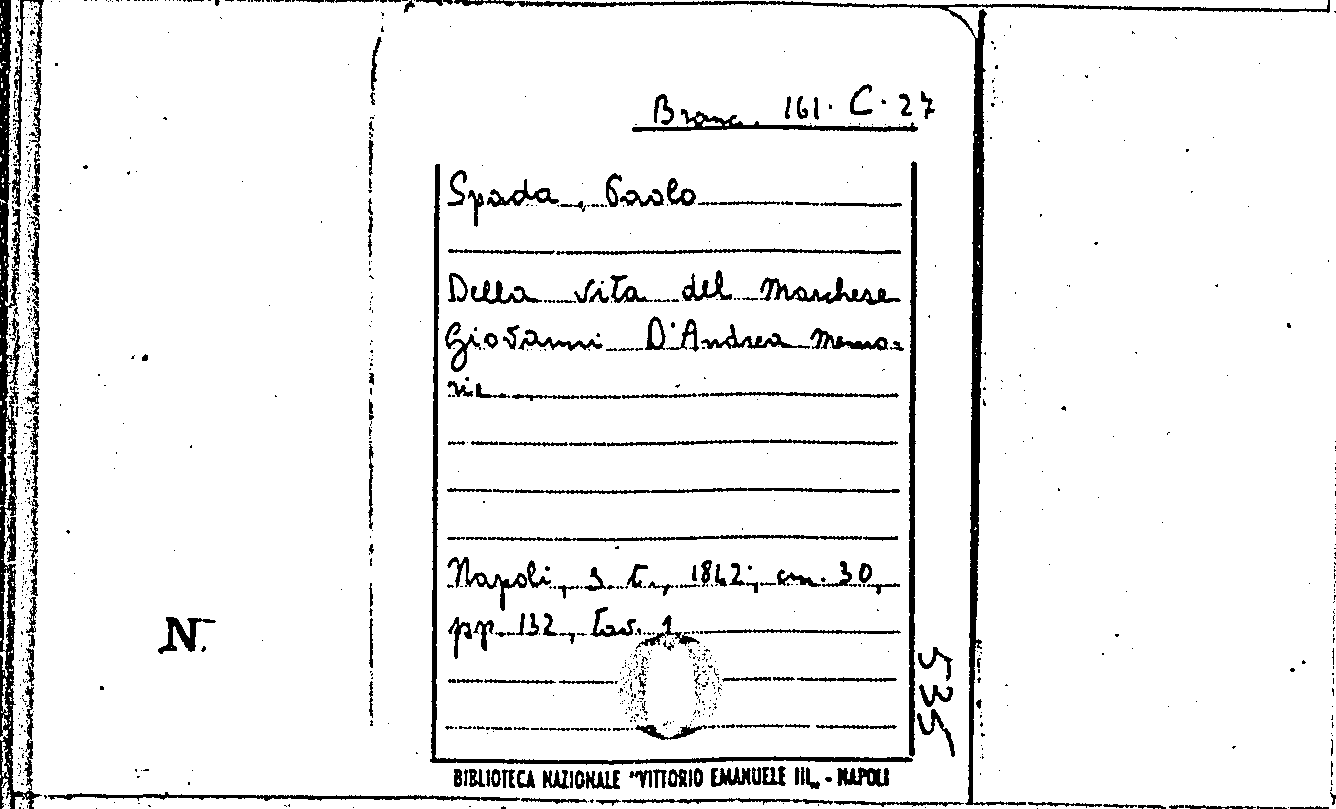 Branc. 161. C. 27
Spada, Paolo
Della vita del Marchese
Giovanni D'Andrea memo=
rie
Napoli, s. t., 1842; cm. 30,
pp. 132, tav. 1
N.
535
BIBLIOTECA NAZIONALE "VITTORIO EMANUELE III„ - NAPOLI